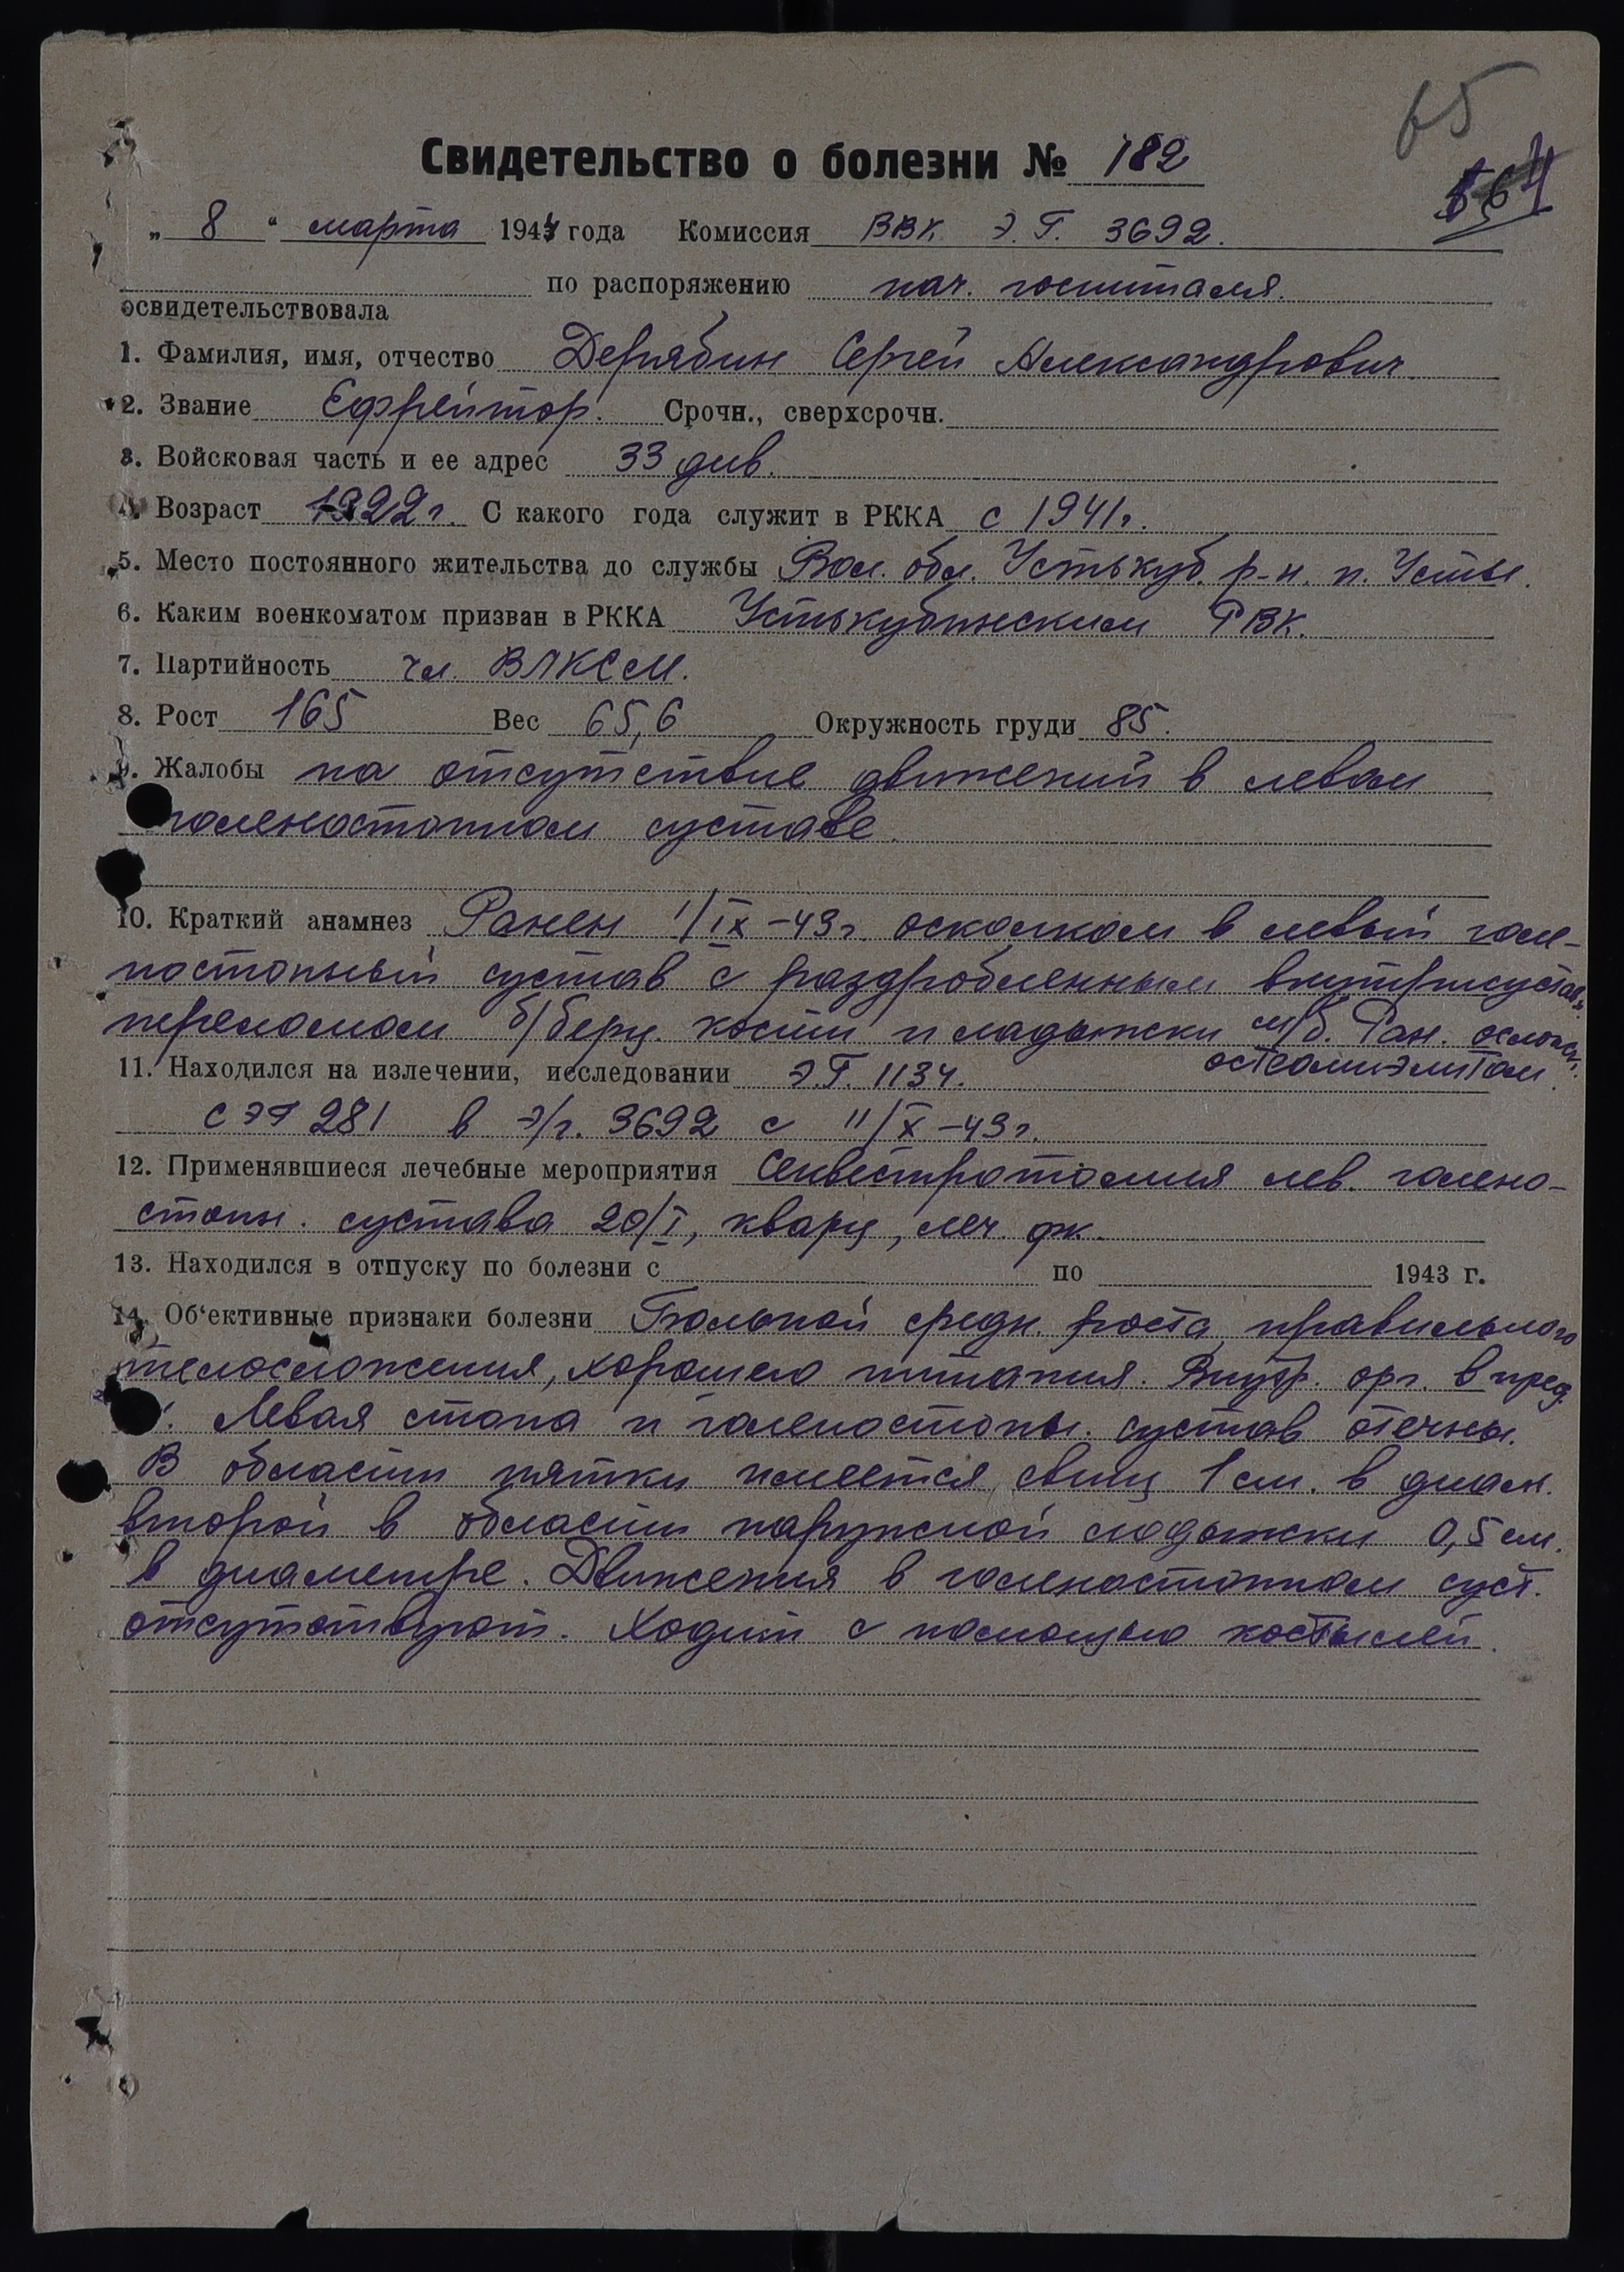 65
Свидетельство о болезни № 182
„ 8 “ марта 1944 года Комиссия ВВК Э. Г. 3692.
по распоряжению нач. госпиталя.
освидетельствовала
1. Фамилия, имя, отчество Дерябин Сергей Александрович
2. Звание Ефрейтор. Срочн., сверхсрочн.
3. Войсковая часть и ее адрес 33 див.
4. Возраст 1922 г. С какого года служит в РККА с 1941 г.
5. Место постоянного жительства до службы Вол. обл. Устькуб. р-н. п. Устье.
6. Каким военкоматом призван в РККА Устькубинским РВК.
7. Партийность чл. ВЛКСМ.
8. Рост 165 Вес 65,6 Окружность груди 85.
9. Жалобы на отсутствие движений в левом
голеностопном суставе.
10. Краткий анамнез Ранен 1/IX-43 г. осколком в левый голе-
ностопный сустав с раздробленным внутрисустав.
переломом б/берц. кости и ладыжки м/б. Ран. осложн.
остеомиэлитом.
11. Находился на излечении, исследовании ЭГ. 1134.
СЭГ 281 в э/г. 3692 с 11/X-43 г.
12. Применявшиеся лечебные мероприятия Секвестротомия лев. голено-
стопн. сустава 20/I, кварц, леч. фк.
13. Находился в отпуску по болезни с по 1943 г.
14. Об‘ективные признаки болезни Больной средн. роста, правильного
телосложения, хорошего питания. Внутр. орг. в пред.
Левая стопа и голеностопн. сустав отечны.
В области пятки имеется свищ 1 см. в диам.
второй в области наружной лодыжки 0,5 см.
в диаметре. Движения в голеностопном суст.
отсутствуют. Ходит с помощью костылей.